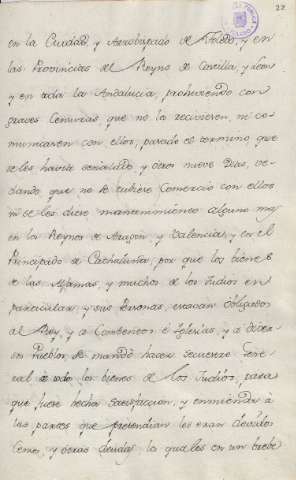 22
en la Ciudad, y Arzobispado de Toledo, y en
las Provincias del Reyno de Castilla, y Leon
y en toda la Andalucia, prohiviendo con
graves Censuras que no los recivieren, ni co-
municaren con ellos, pasado el termino que
se les havia señalado y otros nueve Dias, ve-
dando que no se tubiere Comercio con ellos
ni se les diere mantenimiento alguno mas
en los Reynos de Aragon y Valencia, y en el
Principado de Cathaluña, por que los bienes
de las Aljamas, y muchos de los Judios en
particular, y sus Personas, estavan obligados
al Rey, y a Combentos e Iglesias, y a diver-
sos Pueblos, se mandó hacer secuestro Gene-
ral de todos los bienes de los Judios, para
que fuese hecha satisfaccion, y enmienda à
las partes que pretendian les eran devidos
Censos, y otras deudas, la qual es en un breve